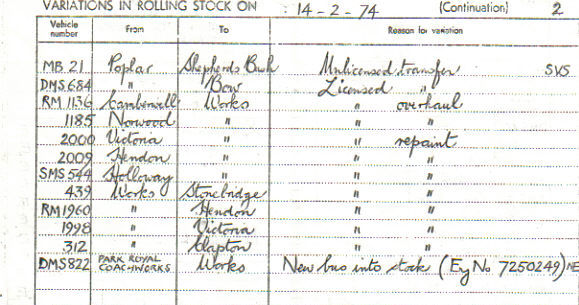 VARIATIONS IN ROLLING STOCK ON : 14-2-74 (Continuation) 2
Vehicle number From To Reason for variation
MB 21 Poplar Shepherds Bush Unlicensed transfer SVS
DMS 684 " Bow Licensed "
RM 1136 Camberwell Works " overhaul
1185 Norwood " " "
2000 Victoria " " repaint
2009 Hendon " " "
SMS 544 Holloway " " "
439 Works Stonebridge " "
RM 1960 " Hendon " "
1998 " Victoria " "
312 " Clapton " "
DMS 822 PARK ROYAL COACHWORKS Works New bus into stock (Eng No 7250249) NE